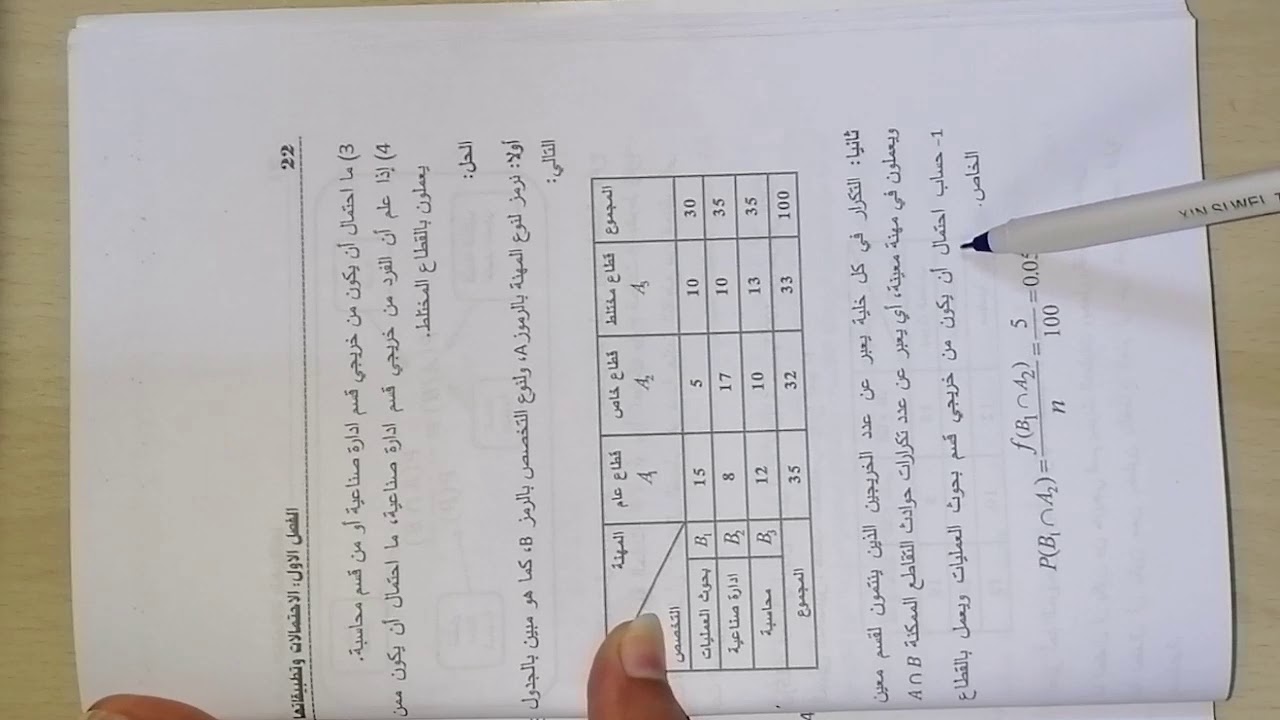 الفصل الاول: الاحتمالات وتطبيقاتها 22
3) ما احتمال أن يكون من خريجي قسم ادارة صناعية أو من قسم محاسبة.
4) إذا علم أن الفرد من خريجي قسم ادارة صناعية، ما احتمال أن يكون ممن
يعملون بالقطاع المختلط.
الحل:
أولا: نرمز لنوع المهنة بالرموز A، ولنوع التخصص بالرمز B، كما هو مبين بالجدول
التالي:
المهنة قطاع عام قطاع خاص قطاع مختلط المجموع
التخصص A₁ A₂ A₃
بحوث العمليات B₁ 15 5 10 30
ادارة صناعية B₂ 8 17 10 35
محاسبة B₃ 12 10 13 35
المجموع 35 32 33 100
ثانيا: التكرار في كل خلية يعبر عن عدد الخريجين الذين ينتمون لقسم معين
ويعملون في مهنة معينة، أي يعبر عن عدد تكرارات حوادث التقاطع الممكنة A ∩ B
1- حساب احتمال أن يكون من خريجي قسم بحوث العمليات ويعمل بالقطاع
الخاص.
P(B₁ ∩ A₂) = f(B₁ ∩ A₂) / n = 5 / 100 = 0.05
XIN SI WEI